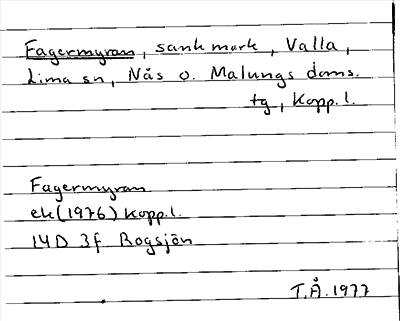 Fagermyran, sank mark, Valla,
Lima sn, Nås o. Malungs doms.
tg, Kopp.l.
Fagermyran
ek(1976) Kopp.l.
14D 3f Rogsjön
T.Å. 1977